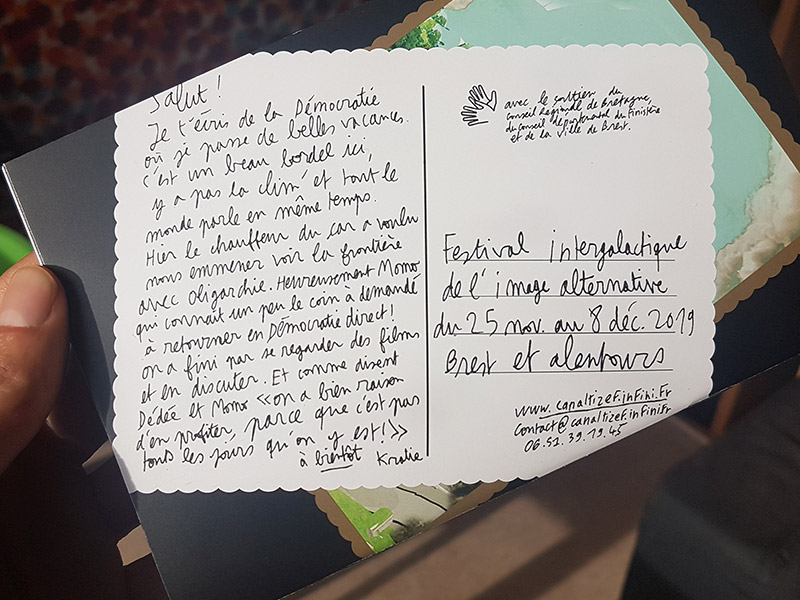 Salut !
Je t'écris de la Démocratie
où je passe de belles vacances.
c'est un beau bordel ici,
y a pas la clim' et tout le
monde parle en même temps.
Hier le chauffeur du car a voulu
nous emmener voir la frontière
avec Oligarchie. Heureusement Momo
qui connait un peu le coin à demandé
à retourner en Démocratie direct!
on a fini par se regarder des films
et en discuter. Et comme disent
Dédée et Momo « on a bien raison
d'en profiter, parce que c'est pas
tous les jours qu'on y est! »
à bientôt Kratie
avec le soutien du
conseil Régional de Bretagne,
du conseil départemental du Finistère
et de la ville de Brest.
Festival intergalactique
de l'image alternative
du 25 nov. au 8 déc. 2019
Brest et alentours
www.canaltizef.infini.fr
contact@canaltizef.infini.fr
06.51.39.19.45